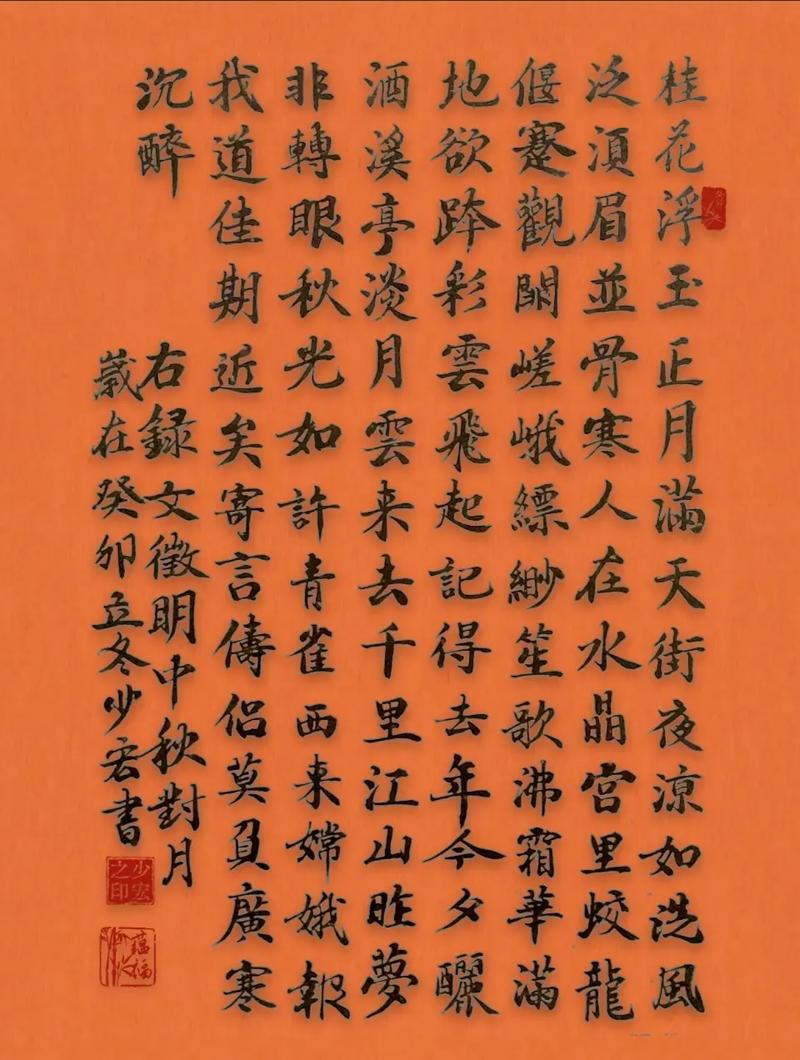 桂花浮玉正月滿天街夜凉如洗風
泛湏眉並骨寒人在水晶宮里蛟龍
偃蹇觀闕嵯峨縹緲笙歌沸霜華滿
地欲跨彩雲飛起記得去年今夕釃
酒溪亭淡月雲来去千里江山昨夢
非轉眼秋光如許青雀西来嫦娥報
我道佳期近矣寄言儔侣莫負廣寒
沉醉
右録文徵明中秋對月
歲在癸卯立冬少宏書
少宏之印